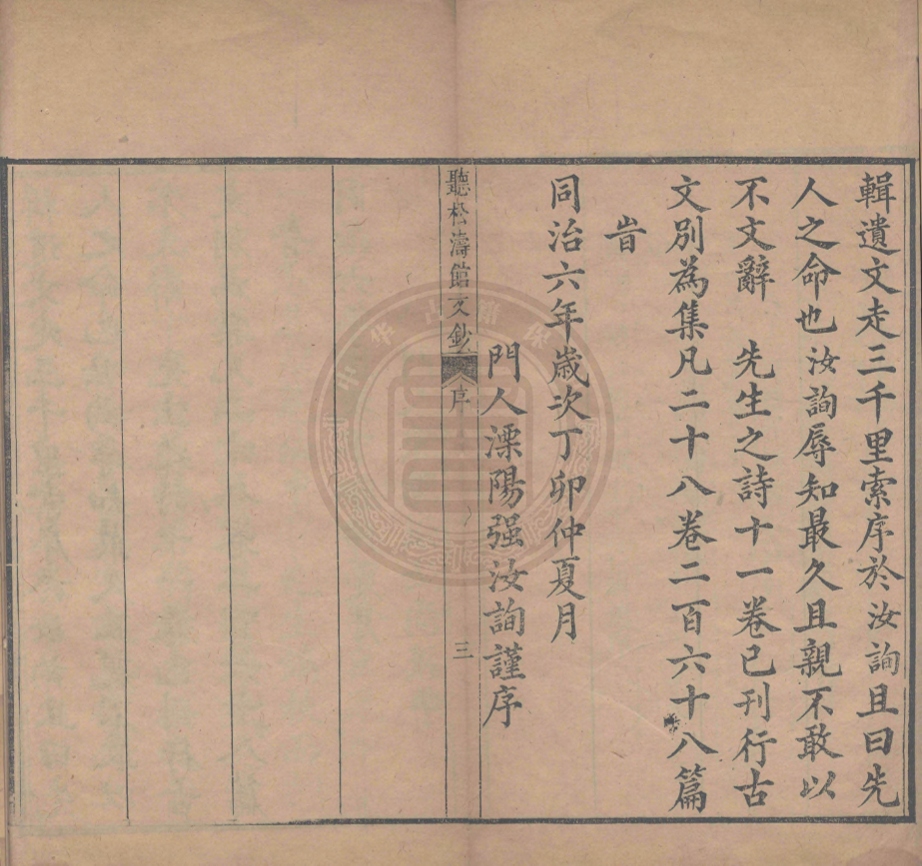 輯遺文走三千里索序於汝詢且曰先
人之命也汝詢辱知最久且親不敢以
不文辭　先生之詩十一卷已刊行古
文別為集凡二十八卷二百六十八篇
旹
同治六年歲次丁卯仲夏月
門人溧陽强汝詢謹序
聽松濤館文鈔
序
三
中华古籍保